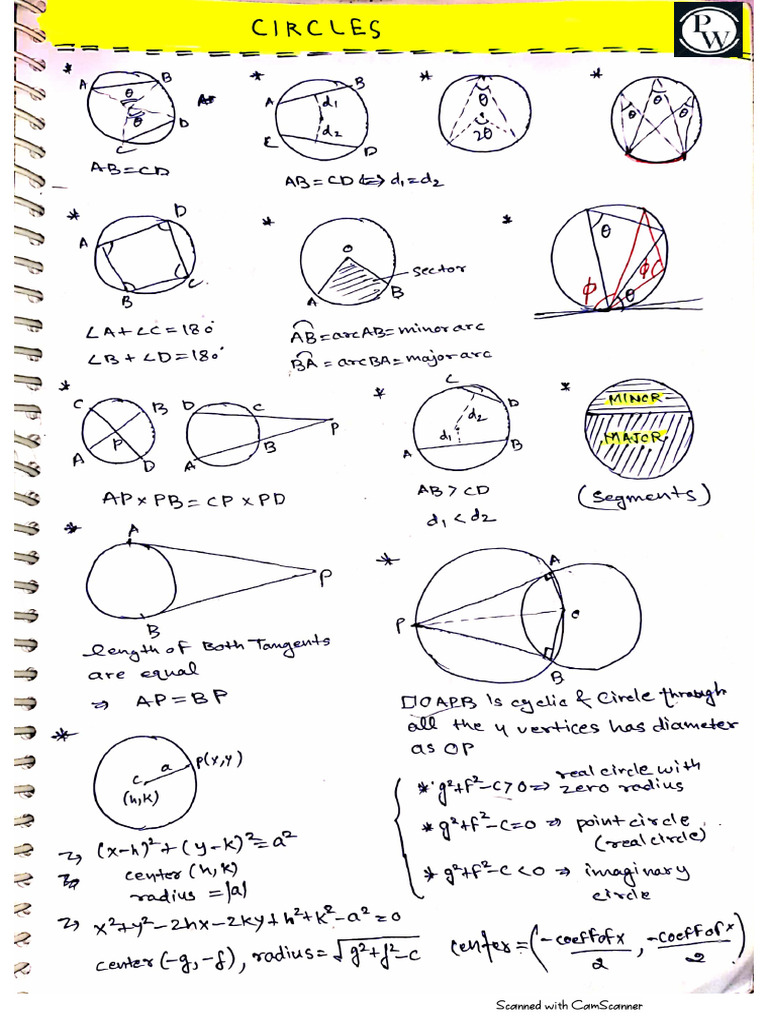 CIRCLES
PW
* A B θ θ C D
AB=CD
* A B d1 d2 E D
AB=CD⟺d1=d2
* θ 2θ
* θ θ θ
* A D B C
∠A+∠C=180°
∠B+∠D=180°
* O A B sector
AB=arcAB=minor arc
BA=arcBA=major arc
* θ ϕ ϕ θ
* C B P A D
D C A B P
AP×PB=CP×PD
* C D d2 d1 A B
AB>CD
d1<d2
* MINOR
MAJOR
(segments)
* A P B
length of Both Tangents
are equal
⇒ AP=BP
* A P O B
□OAPB is cyclic & Circle through
all the 4 vertices has diameter
as OP
* a P(x,y)
C
(h,k)
⇒ (x-h)²+(y-k)²=a²
⇒ center(h,k)
radius=|a|
⇒ x²+y²-2hx-2ky+h²+k²-a²=0
center(-g,-f), radius=√g²+f²-c
* g²+f²-c>0⇒ real circle with
zero radius
* g²+f²-c=0 ⇒ point circle
(real circle)
* g²+f²-c<0 ⇒ imaginary
circle
center=(-coeff of x/2, -coeff of x/2)
Scanned with CamScanner